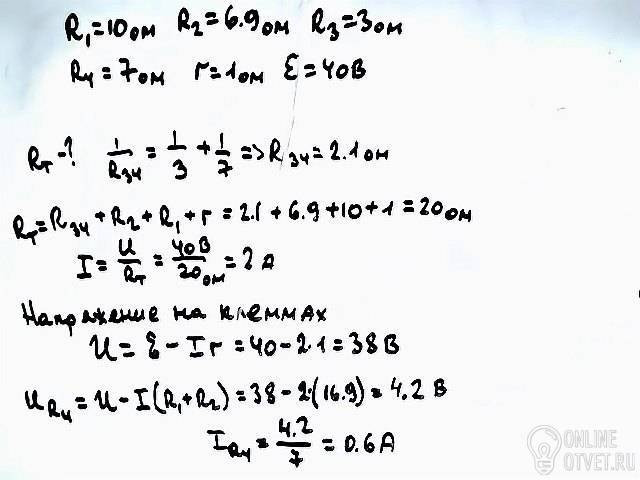 R₁=10ом R₂=6.9ом R₃=3ом
R₄=7ом r=1ом Ɛ=40В
Rт-? 1/R₃₄ = 1/3 + 1/7 => R₃₄=2.1ом
Rт=R₃₄+R₂+R₁+r=2.1+6.9+10+1=20ом
I=U/Rт=40В/20ом=2А
Напряжение на клеммах
U=Ɛ-Ir=40-2·1=38В
U_R₄=U-I(R₁+R₂)=38-2·(16.9)=4.2В
I_R₄=4.2/7=0.6А
ONLINE
OTVET.RU